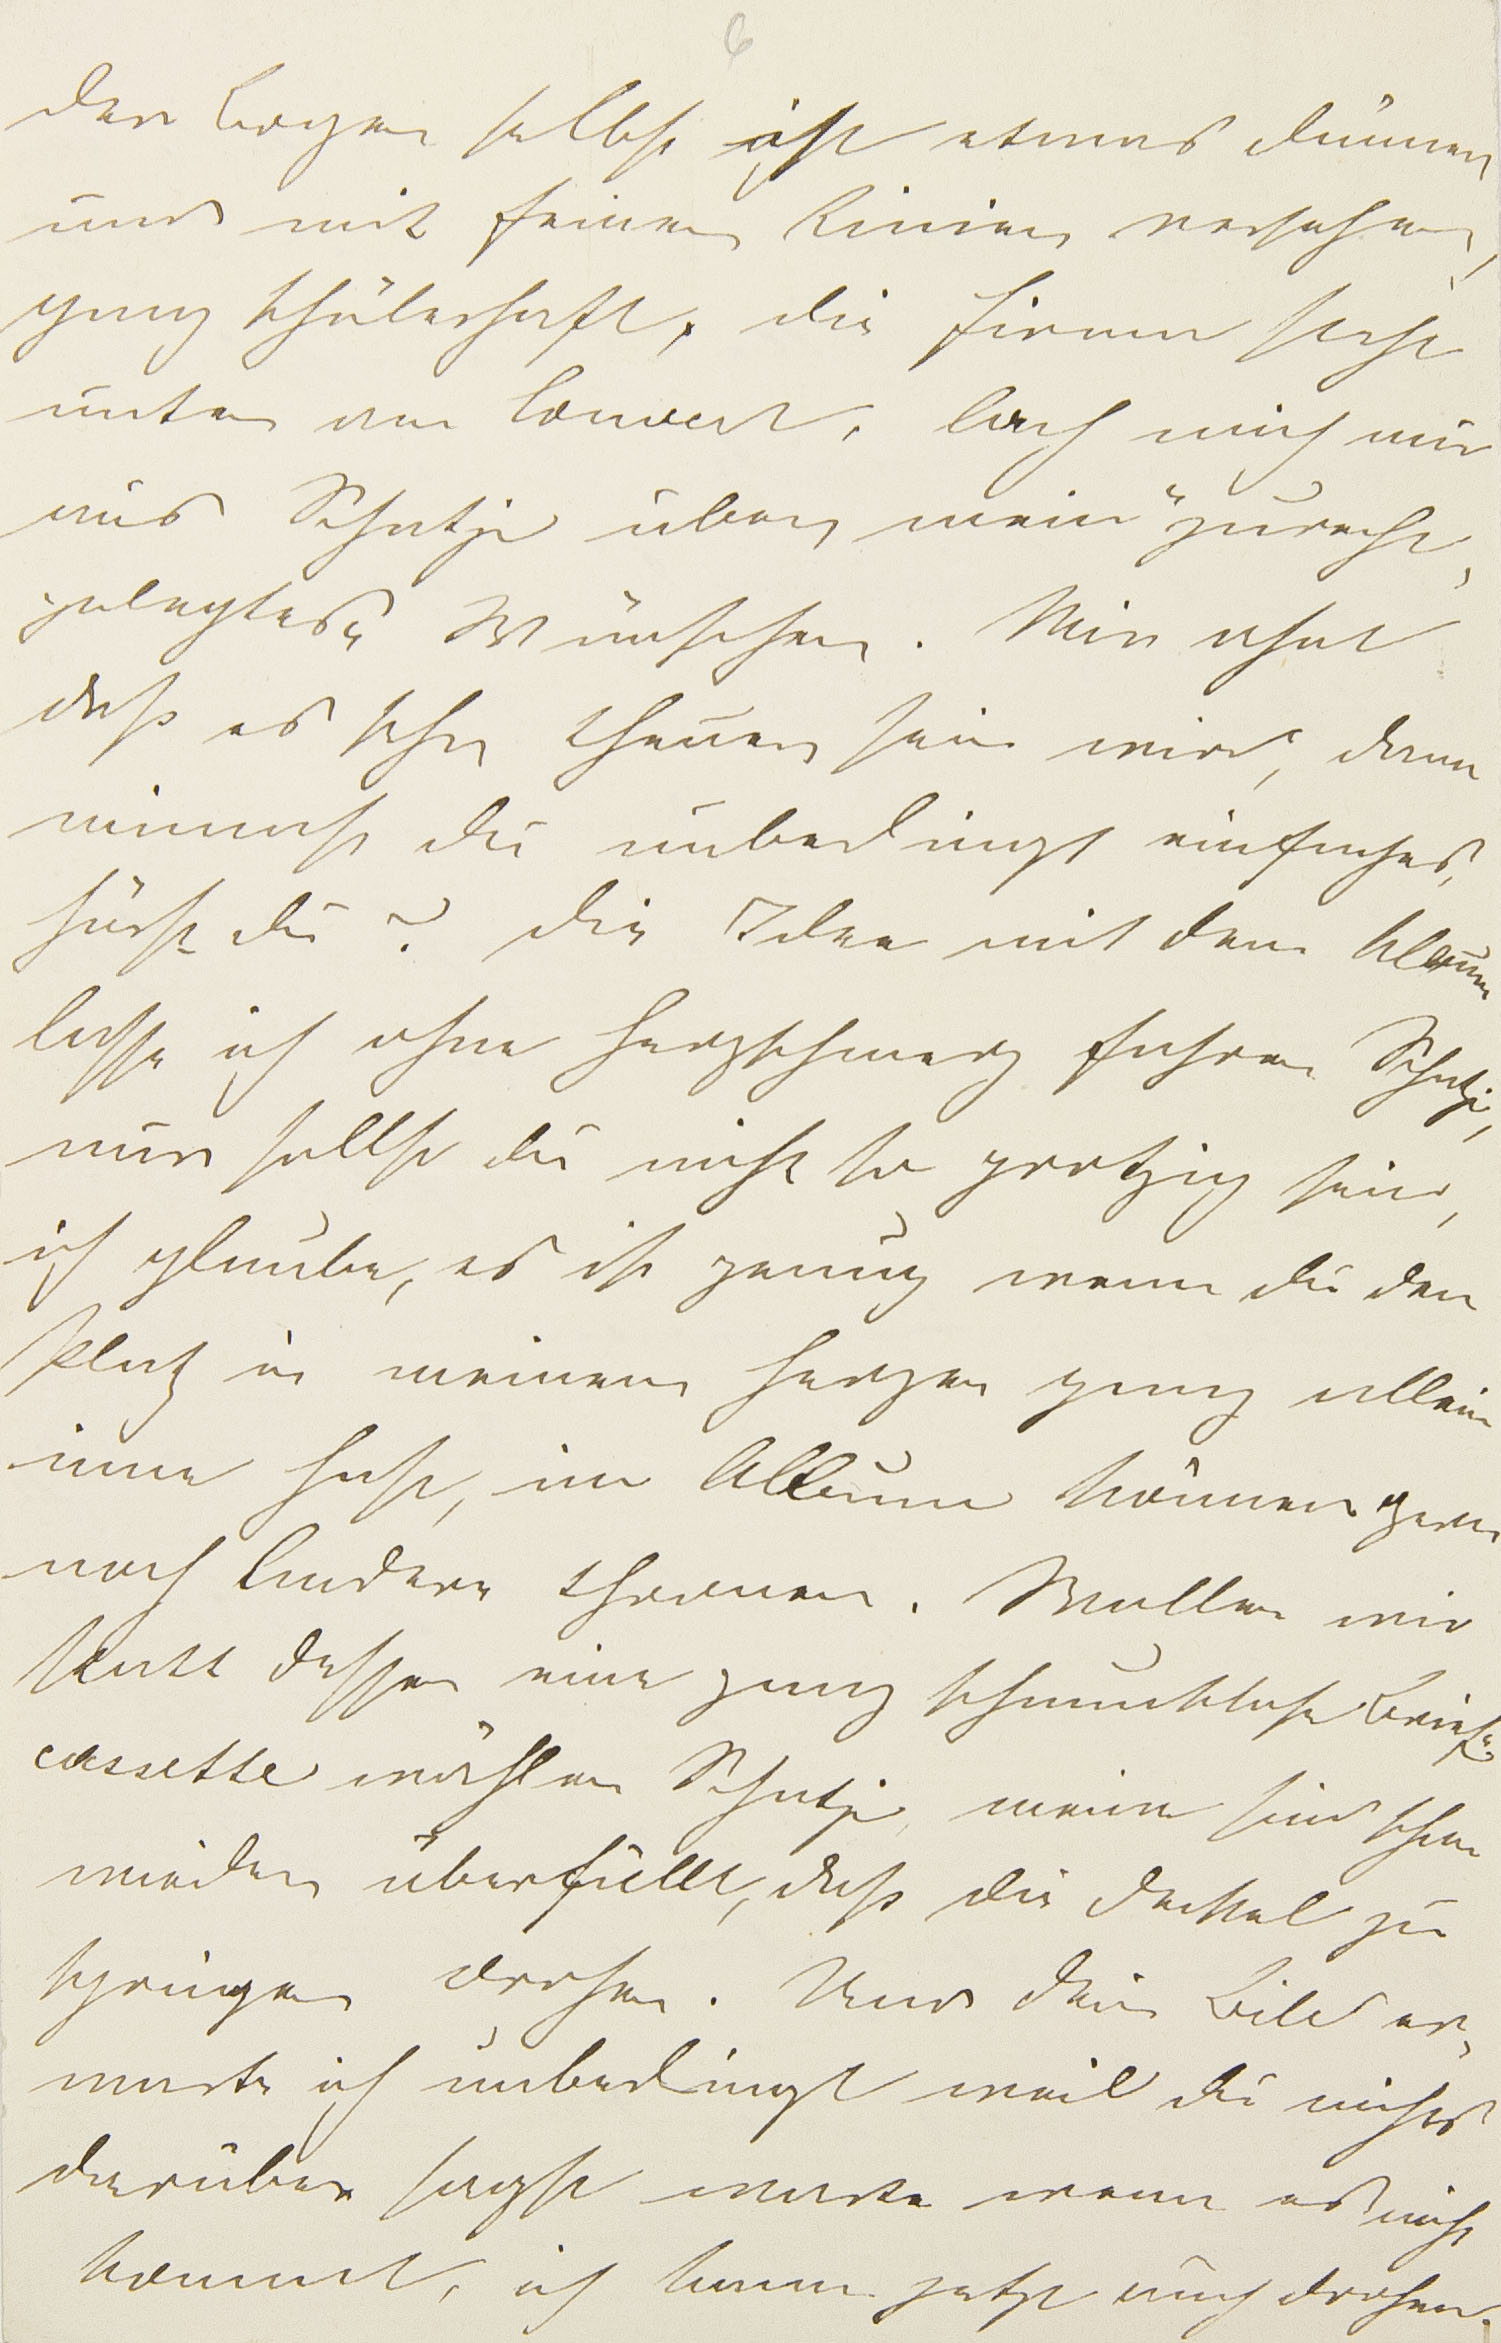 6
der Bogen selbst ist etwas dünner
und mit feinen Linien versehen,
ganz schülerhaft, die Firma steht
unten am Couvert. Lach mich nur
aus Schatzi über mein "zurecht-
gelegtes" Wünschen. Mir ahnt
daß es sehr theuer sein wird, dann
nimmst du unbedingt einfaches,
hörst du? Die Idee mit dem Album
lasse ich ohne Herzschmerz fahren Schatzi,
nur sollst du nicht so protzig sein,
ich glaube, es ist genug wenn du den
Platz in meinem Herzen ganz allein
inne hast, im Album können gern
noch Andere thronen. Wollen wir
statt dessen eine ganz schmucklose Brief-
cassette wählen Schatzi, meine sind schon
wieder überfüllt, daß die Deckel zu
springen drohen. Und dein Bild er-
warte ich unbedingt weil du nichts
darüber sagst warte wenn es nicht
kommt, ich kann jetzt auch drohen.